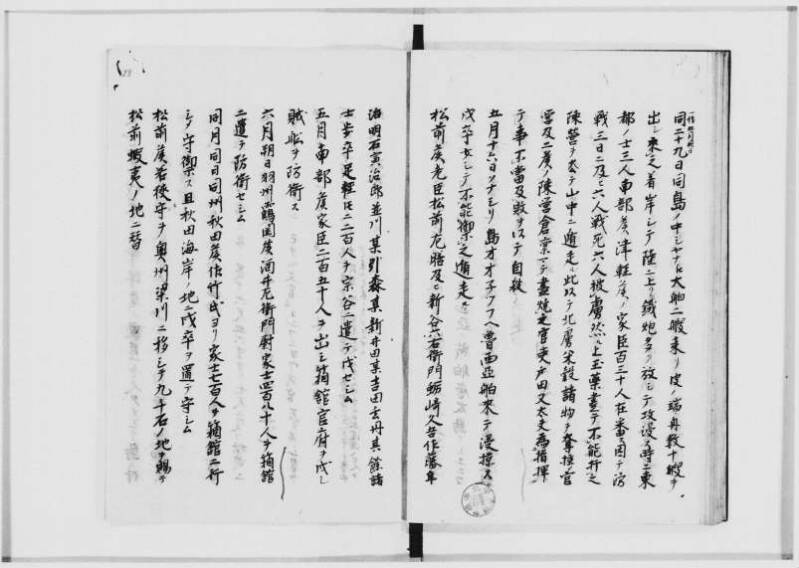 同二十九日同島ノ中シヤナヘ大舶二艘来リ皮ノ端舟数十艘ヲ
出シ来定着岸シテ陸ニ上リ鐵炮多ク放シテ攻浸ス時ニ東
部ノ士三人南部侯津軽侯ノ家臣百三十人在番ス因テ防
戦三日ニ及ヒ六人戦死六人被虜然ル上玉薬盡テ不能拝之
陳営ヲ去テ山中ニ遁走ル此以テ北虜米穀諸物ヲ奪掠官
営及二侯ノ陳営倉家マテ盡焼之官吏戸田又太夫為指揮
テ事不當及敗ヲ以テ自殺
五月十六日スナヘリ島オオ子フフヘ魯西亜舶来テ浸掠ス
戍卒少シテ不能禦之遁走
松前侯老臣松前左膳及ヒ新谷六左衛門蛎崎久吾作藩卑
治明石寅治郎並川某引森某新井田某吉田玄丹其餘諸
士歩卒足軽共二百人ヲ宗谷ニ遣テ戍セシム
五月南部侯家臣二百五十人ヲ出シ箱館官府ヲ戍シ
賊船ヲ防衛ス
六月朔日羽州鶴岡侯酒井左衛門尉家士四百八十人ヲ箱館
ニ遣テ防衛セシム
同月同日同州秋田侯佐竹氏ヨリ家士七百人ヲ箱館ニ行
シノ守禦ス且秋田海岸ノ地ニ戍卒ヲ置テ守シム
松前侯若狭守ヲ奥州梁川ニ移シテ九千石ノ地ヲ賜テ
松前蝦夷ノ地ニ替